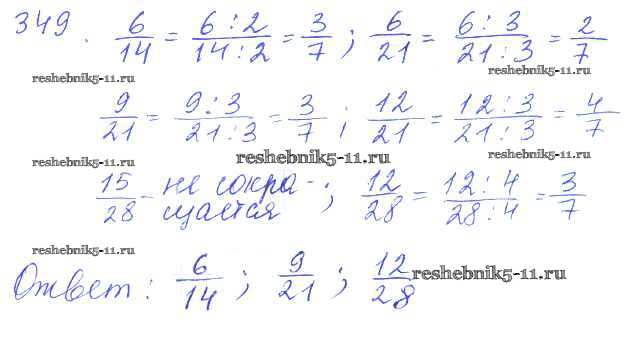 349. 6/14 = 6:2/14:2 = 3/7; 6/21 = 6:3/21:3 = 2/7
reshebnik5-11.ru reshebnik5-11.ru
9/21 = 9:3/21:3 = 3/7; 12/21 = 12:3/21:3 = 4/7
reshebnik5-11.ru reshebnik5-11.ru reshebnik5-11.ru
15/28 - не сокра-
щается; 12/28 = 12:4/28:4 = 3/7
reshebnik5-11.ru
Ответ: 6/14; 9/21; 12/28 reshebnik5-11.ru